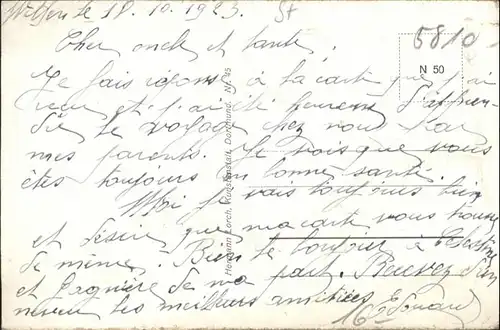 le 18. 10. 1923. St
5810
N 50
Cher oncle et tante.
Je fais réponse à la carte que j'ai
reçu et j'ai été heureux d'appren-
dre le voyage chez vous par
mes parents. Je vois que vous
êtes toujours en bonne santé.
Moi je vais toujours bien
et désire que ma carte vous trouve
de même. Bien le bonjour à
et de ma part. Recevez d'un
neveu les meilleurs amitiées
Edouard
Hermann Lorch, Kunstanstalt, Dortmund. Nr. 45